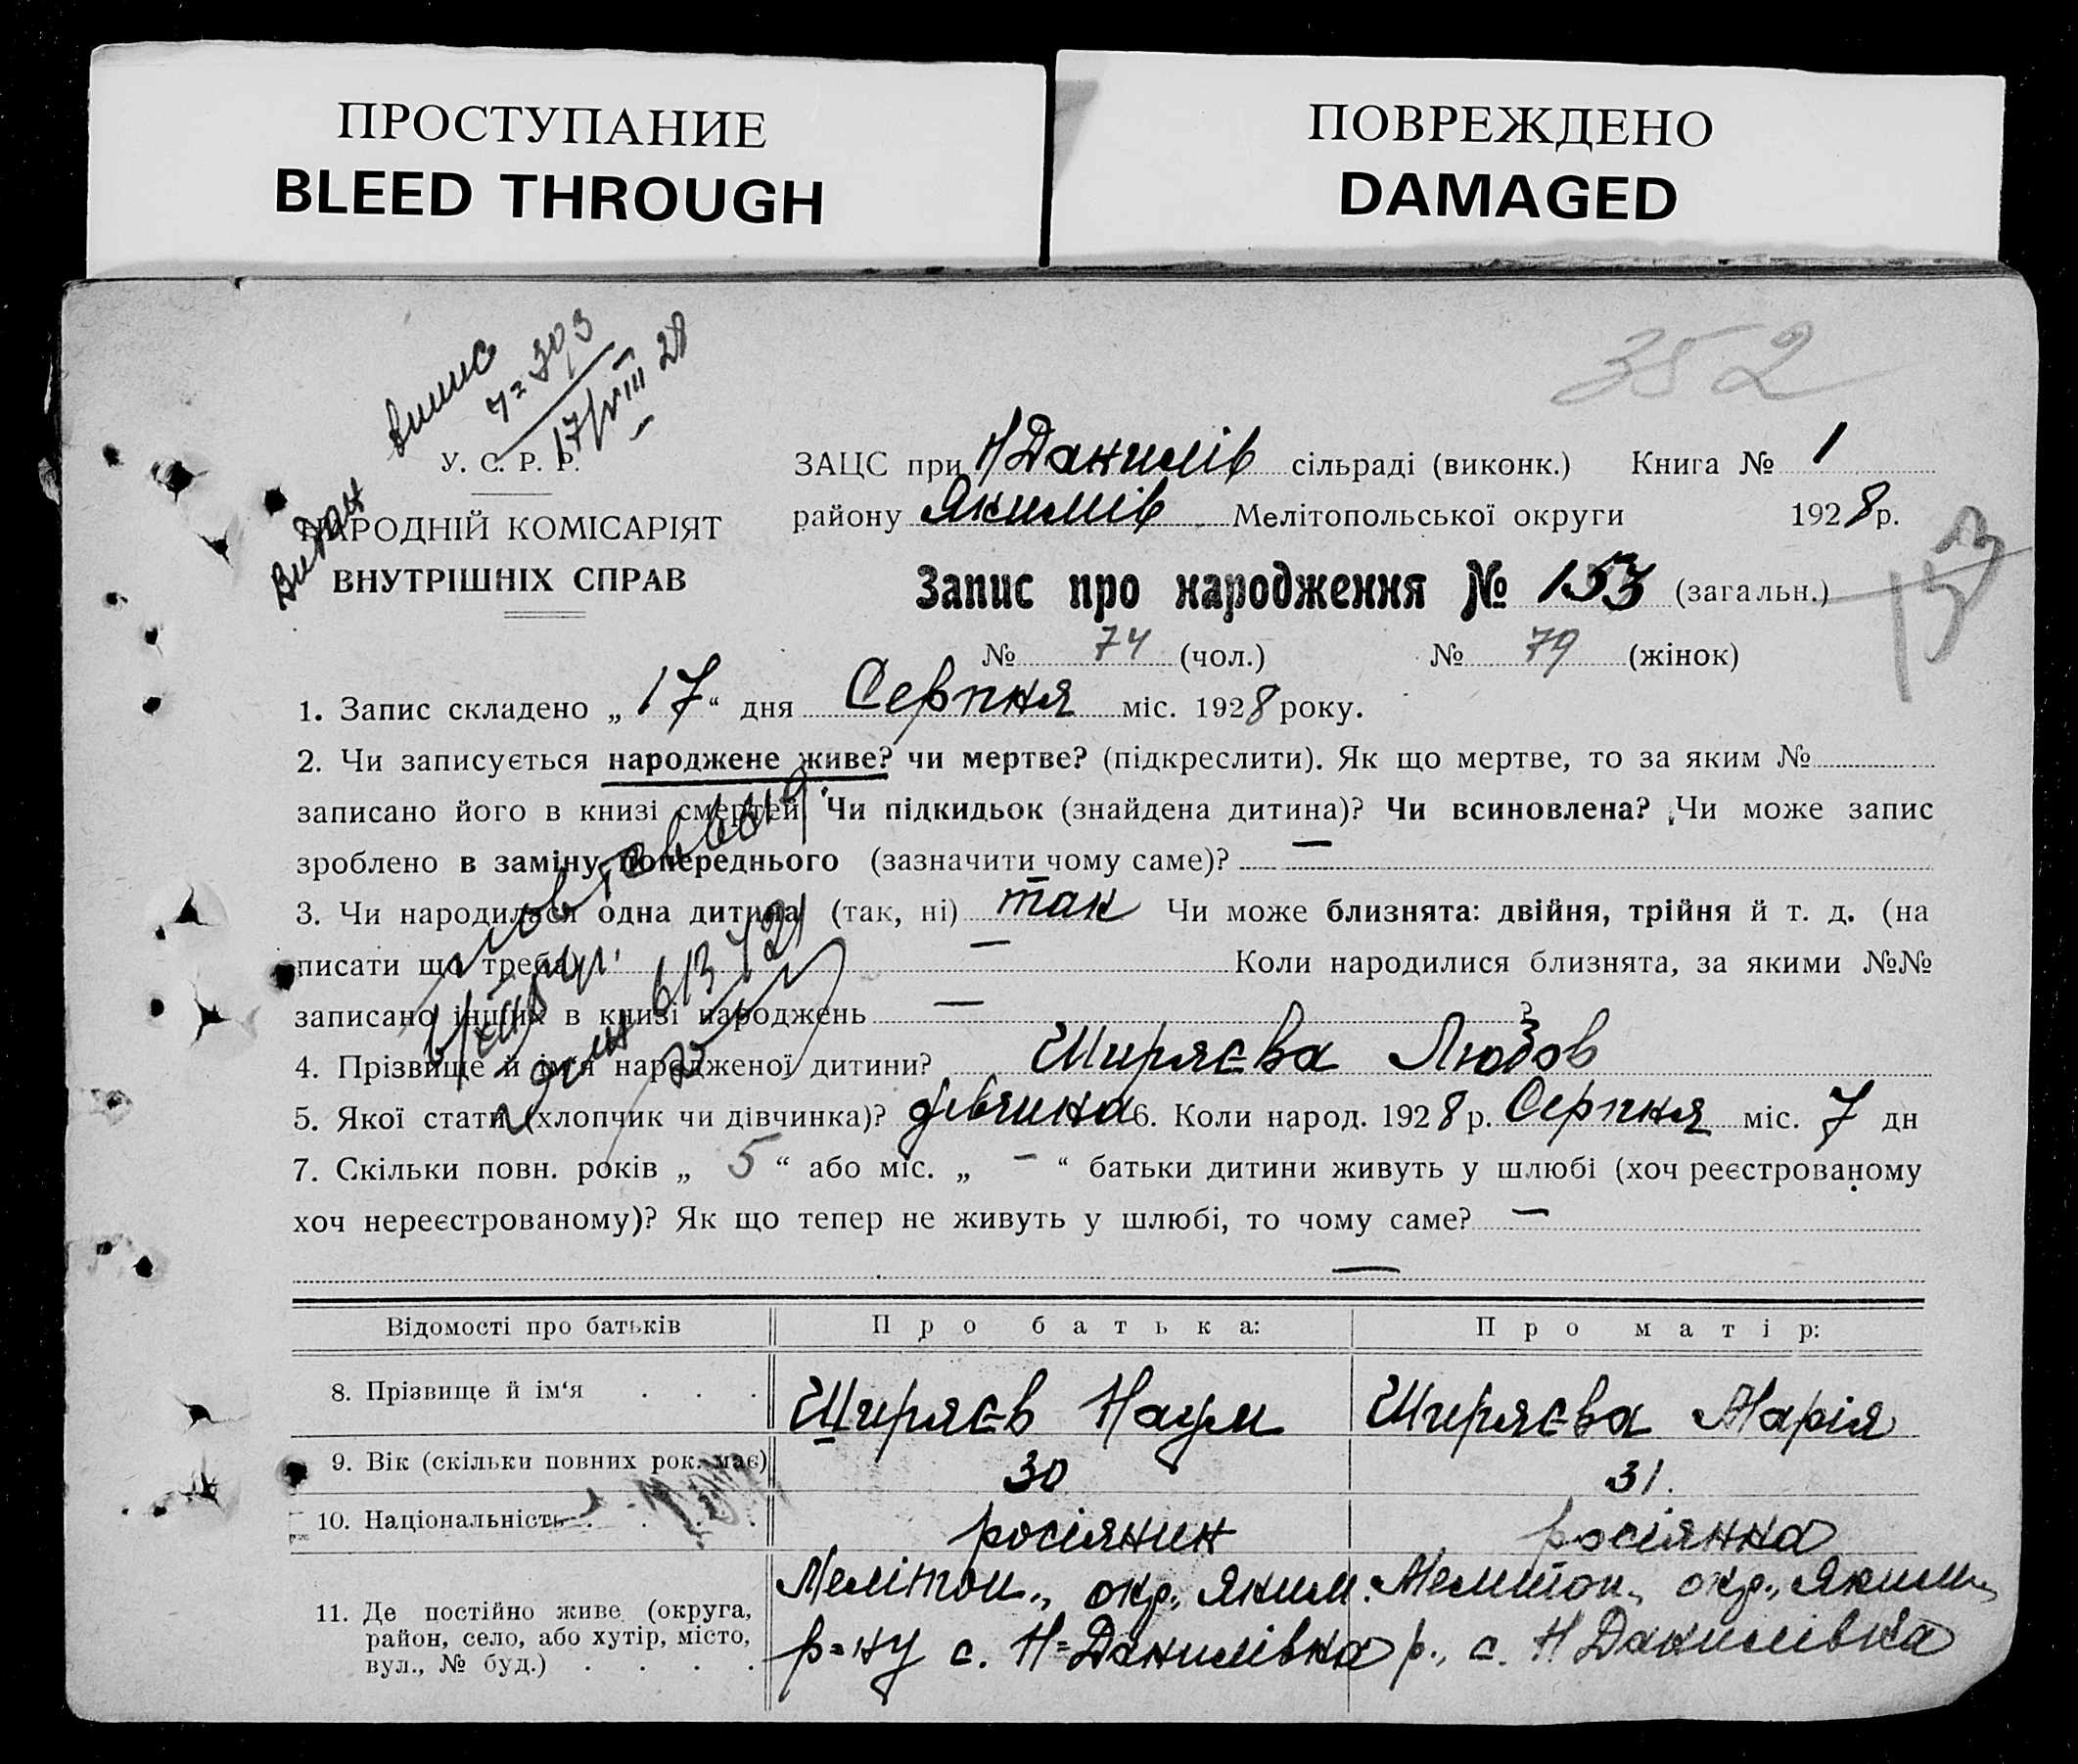 ПРОСТУПАНИЕ
BLEED THROUGH
ПОВРЕЖДЕНО
DAMAGED
352
Видан
випис
ч= 303
17/VIII 28
У. С. Р. Р.
НАРОДНІЙ КОМІСАРІЯТ
ВНУТРІШНІХ СПРАВ
ЗАЦС при Н Данилів сільраді (виконк.) Книга № 1
району Якимів Мелітопольської округи 1928 р.
Запис про народження № 153 (загальн.)
153
№ 74 (чол.) № 79 (жінок)
1. Запис складено „ 17 “ дня Серпня міс. 1928 року.
2. Чи записується народжене живе? чи мертве? (підкреслити). Як що мертве, то за яким №
записано його в книзі смертей Чи підкидьок (знайдена дитина)? Чи всиновлена? Чи може запис
зроблено в заміну попереднього (зазначити чому саме)? —
3. Чи народилася одна дитина (так, ні) так Чи може близнята: двійня, трійня й т. д. (на
писати що треба) — Коли народилися близнята, за якими №№
записано інших в книзі народжень — ?
4. Прізвище й ім'я народженої дитини? Ширяєва Любов
5. Якої стати (хлопчик чи дівчинка)? дівчина 6. Коли народ. 1928 р. Серпня міс. 7 дн
7. Скільки повн. років „ 5 “ або міс. „ – “ батьки дитини живуть у шлюбі (хоч реєстрованому
хоч нереєстрованому)? Як що тепер не живуть у шлюбі, то чому саме? —
—
Відомості про батьків Про батька: Про матір:
8. Прізвище й ім‘я . . . Ширяєв Наум Ширяєва Марія
9. Вік (скільки повних рок. має) 30 31.
10. Національність . . . . росіянин росіянка
11. Де постійно живе (округа,
район, село, або хутір, місто,
вул., № буд.) . . . .
Мелітоп., окр., Яким.
р=ну с. Н=Данилівка
Мелітоп., окр., Яким.
р., с. Н Данилівка